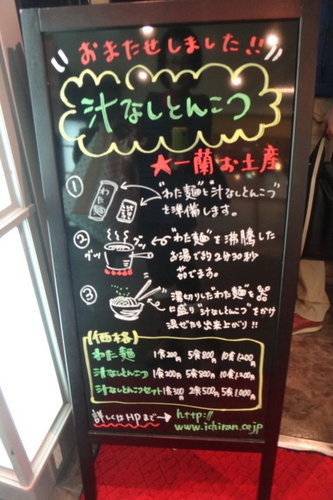 おまたせしました!!
汁なしとんこつ
★一蘭お土産
① わた麺
"わた麺"と"汁なしとんこつ"
を準備します。
② グツ グツ
"わた麺"を沸騰した
お湯で約2分30秒
茹でます。
③ 湯切りした"わた麺"を
に盛り"汁なしとんこつ"をかけ
混ぜたら出来上がり!!
【価格】
わた麺 1食200円 5食800円 10食1,200円
汁なしとんこつ 1食200円 5食800円 10食1,200円
汁なしとんこつセット 1食300円 2食500円 5食1,000円
詳しくはHPまで→ http://
www.ichiran.co.jp